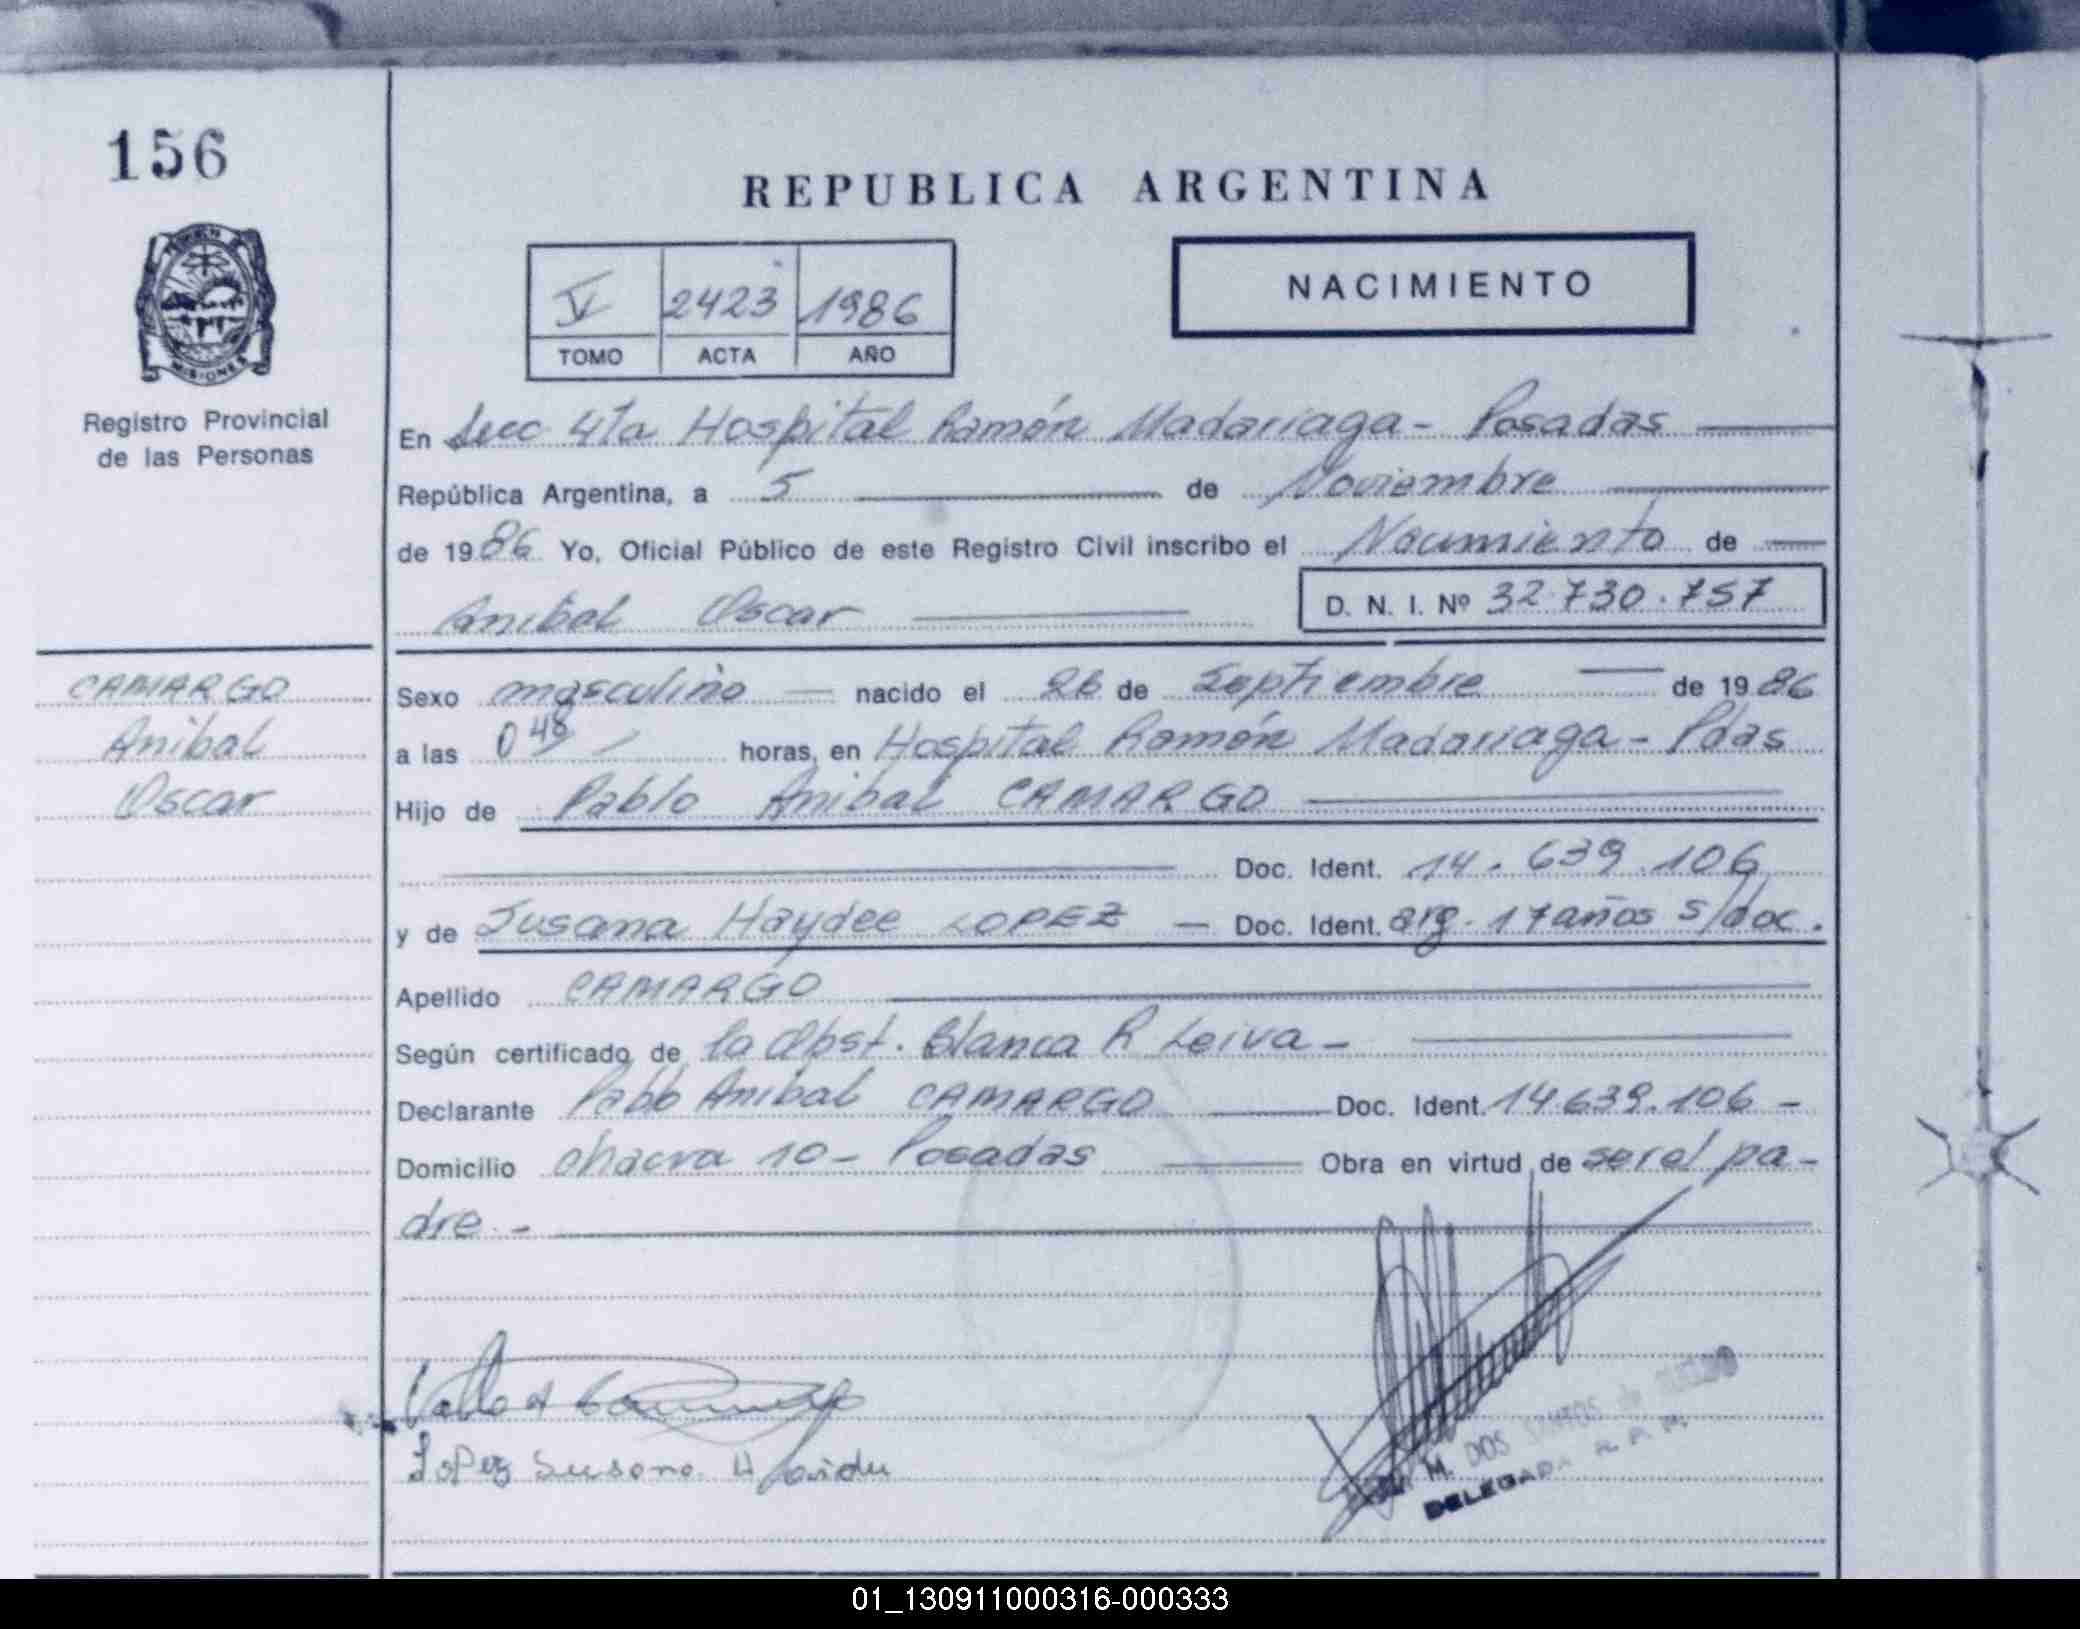 156
REPUBLICA ARGENTINA
V 2423 1986
TOMO ACTA AÑO
NACIMIENTO
MISIONES
Registro Provincial
de las Personas
En Secc 4ta Hospital Ramón Madariaga - Posadas
República Argentina, a 5 de Noviembre
de 1986 Yo, Oficial Público de este Registro Civil inscribo el Nacimiento de
Anibal Oscar
D. N. I. Nº 32.730.757
CAMARGO
Anibal
Oscar
Sexo masculino nacido el 26 de Septiembre de 1986
a las 0 48 horas, en Hospital Ramón Madariaga - Pdas
Hijo de Pablo Anibal CAMARGO
Doc. Ident. 14.639.106
y de Susana Haydee LOPEZ - Doc. Ident. arg. 17 años s/doc.
Apellido CAMARGO
Según certificado de la Obst. Blanca R Leiva -
Declarante Pablo Anibal CAMARGO Doc. Ident. 14.639.106 -
Domicilio chacra 10 - Posadas Obra en virtud de ser el pa-
dre. -
Lopez Susana H
M. DOS SANTOS de
DELEGADA R. P. P.
01_130911000316-000333